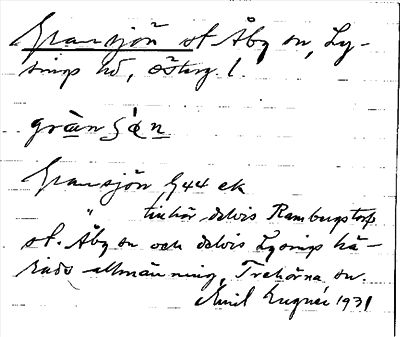 Gransjön st. Åby sn, Ly-
sings hd, Österg. l.
gràn ʃɷ̀n
Gransjön, G44 ek
" tillhör delvis Rambergstorp
st. Åby sn och delvis Lysings hä-
rads allmänning, Trehörna sn.
Emil Lugnér 1931